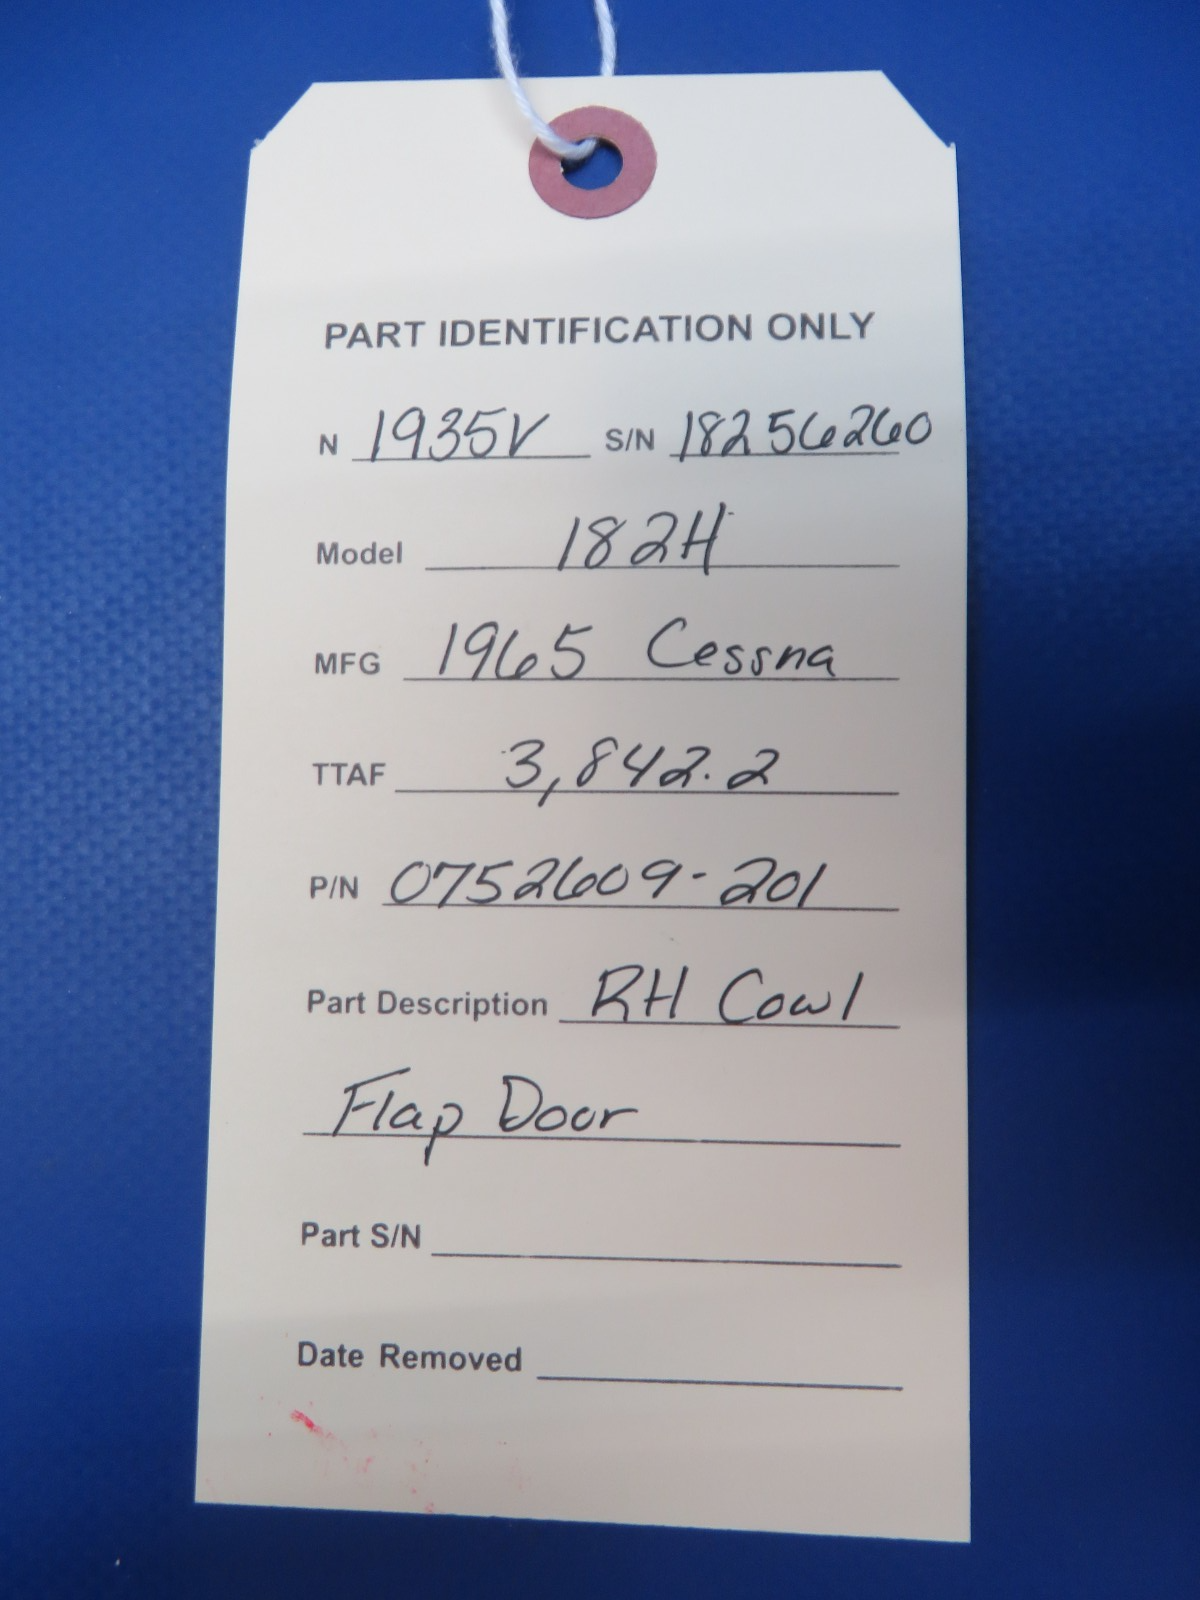 PART IDENTIFICATION ONLY
N 1935V S/N 18256260
Model 182H
MFG 1965 Cessna
TTAF 3,842.2
P/N 0752609-201
Part Description RH Cowl
Flap Door
Part S/N
Date Removed